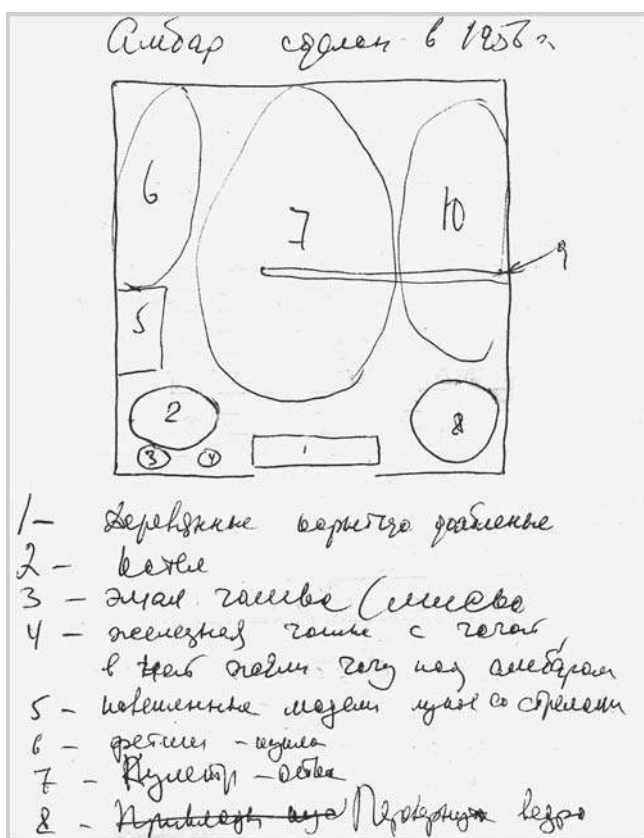 Амбар сделан в 1956 г.
6
7
10
9
5
2
8
3
4
1
1 – Деревянные корытца долбленые
2 – котел
3 – эмал. чашка (миска
4 – железная чашка с чагой,
в ней жгли чагу под амбаром
5 – модели лука со стрелами
6 – фетиш – кукла
7 –
8 – Перевернутое ведро